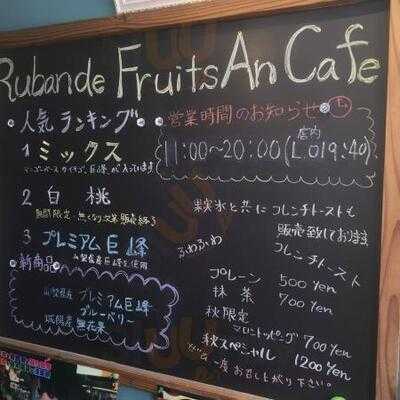 Rubande Fruits An Cafe
人気ランキング
1 ミックス
2 白桃
期間限定・無くなり次第販売終了
3 プレミアム巨峰
山梨県産巨峰を使用
新商品
山梨県産 プレミアム巨峰
ブルーベリー
城陽産 無花果
営業時間のお知らせ
11:00~20:00(L.O19:40)
店内
果実氷と共にフレンチトーストも
販売致しております
ふわふわ フレンチトースト
プレーン 500yen
抹茶 700yen
秋限定
マロントッピング 700yen
秋スペシャル 1200yen
ぜひ一度お召し上がり下さい。